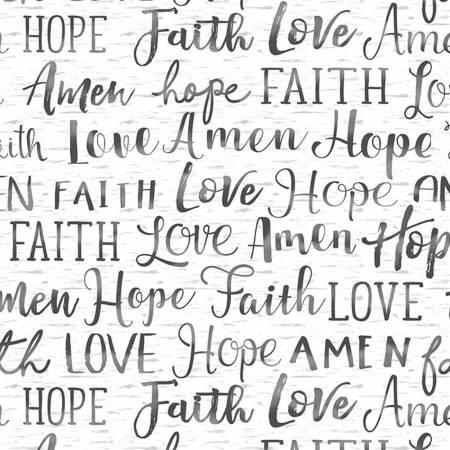 HOPE Faith Love Ame
Amen hope FAITH Lo
ith Love Amen Hope
EN FAITH Love Hope AM
FAITH Love Amen Hop
men Hope Faith LOVE
th LOVE Hope AMEN fa
HOPE Faith Love Ame
FAITH